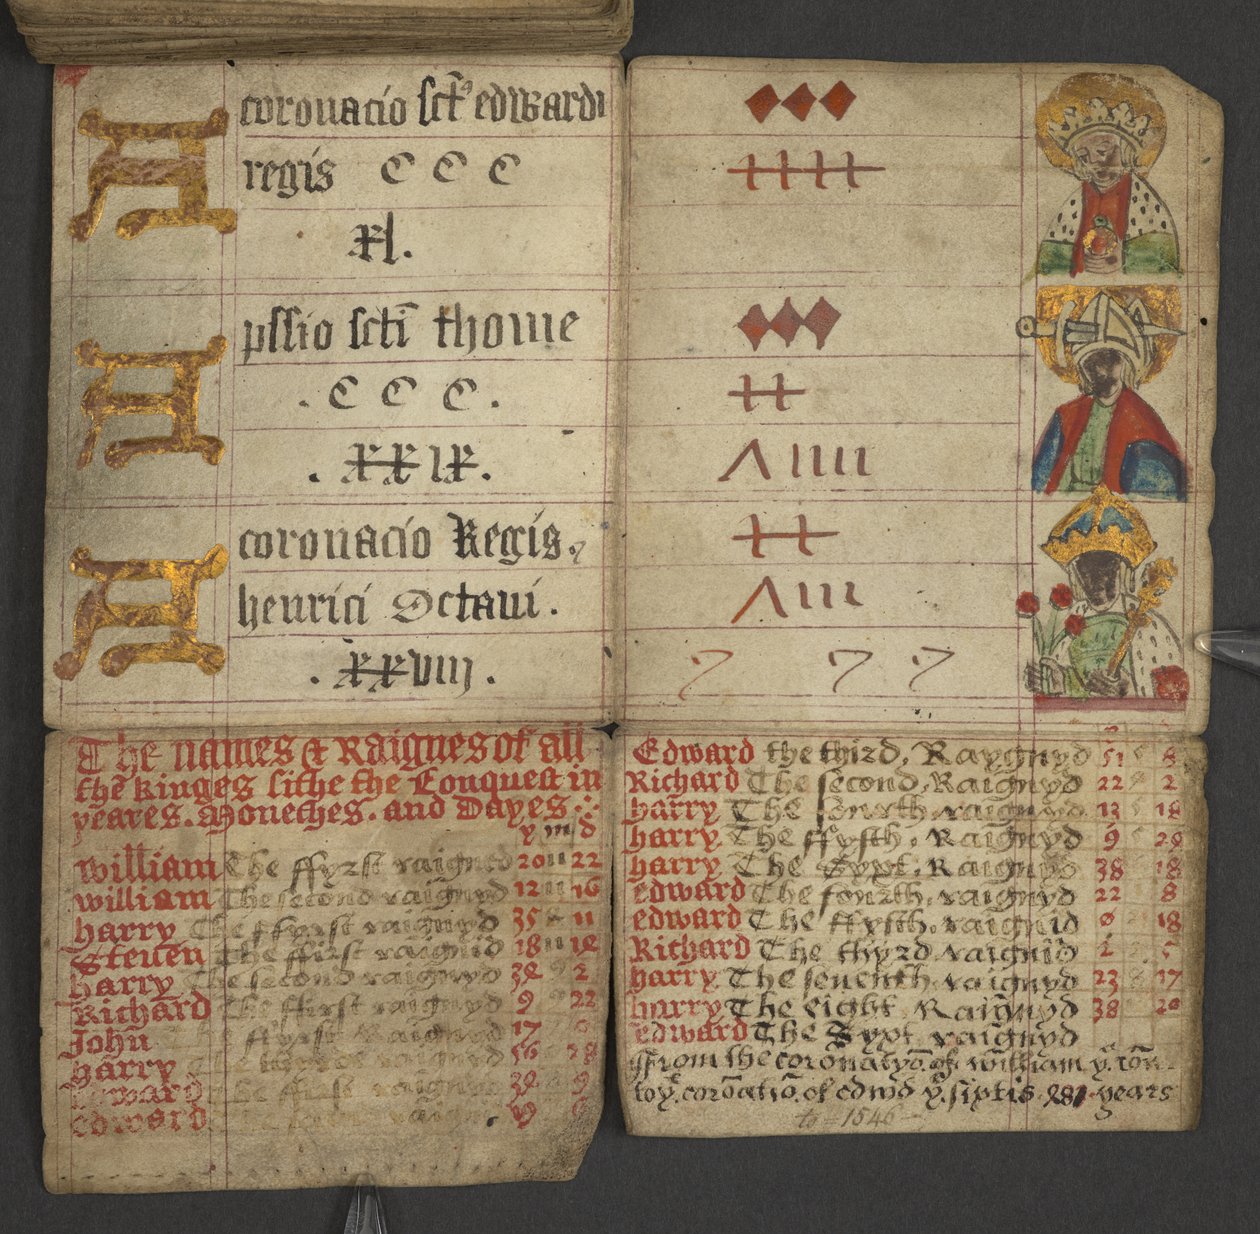 coronacio scti edwardi
regis c c c
xl.
pssio scti thome
. c c c .
. xxix .
coronacio Regis.
henrici Octaui .
. xxviij .
The names & Raignes of all
the kinges sithe the Conquest in
yeares . Monethes . and Dayes
y m d
william The ffyrst raigned 20 11 22
william The second raignyd 12 11 16
harry The ffyrst raignyd 35 11
Steuen The first raignid 18 11
harry The second raignyd 2
Richard The ffirst raignyd 9 22
John raignyd 17
harry The raignyd 56 28
The first raigned
edward raign
Edward the third, Raygnyd 51 8
Richard The second, Raignyd 22 2
harry The fourth, raignyd 13 18
harry The ffyfth, Raignyd 9
harry The Syxt, Raignyd 38 18
edward The fourth, raignyd 22 8
edward The ffyfth, raignid 0 18
Richard The thyrd raignid 2
harry The seuenth, raignyd 23 17
harry The eight Raignyd 38
edward The Syxt raignyd
ffrom the coronatyō of william yͤ
to yͤ corōatiō of edwd yͤ years
to = 1546